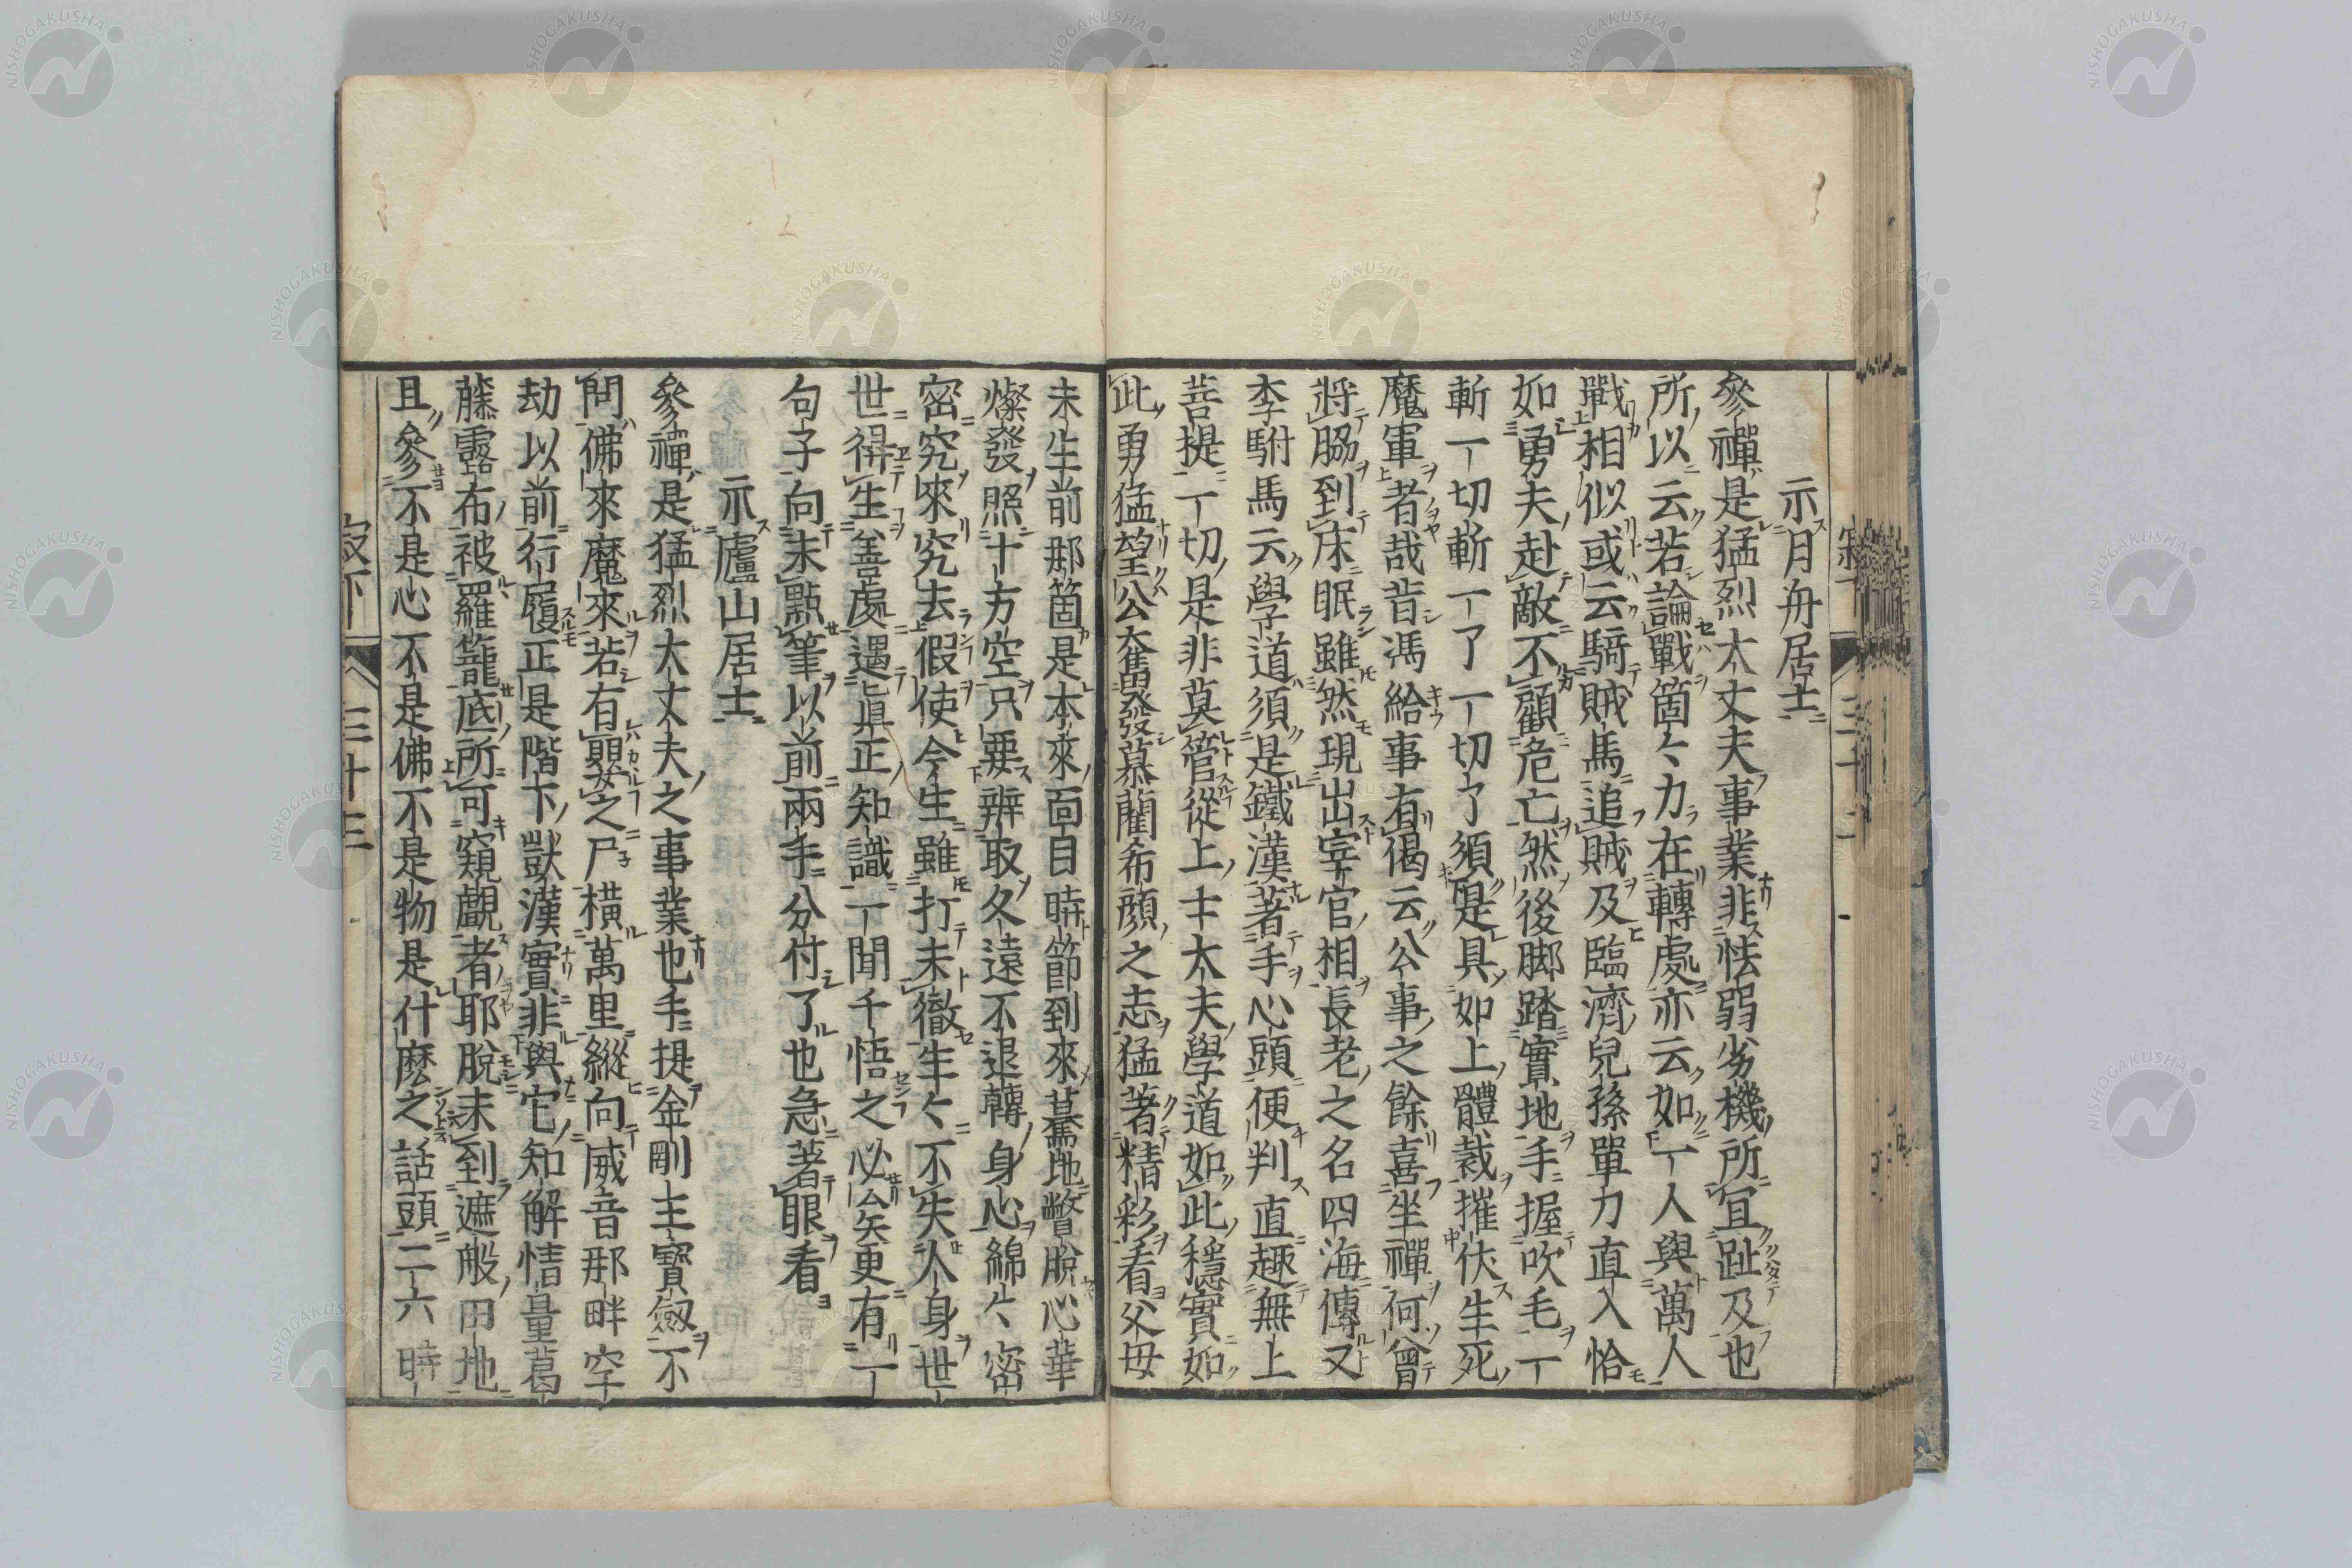 示月舟居士
參禪是猛烈大丈夫事業非怯弱劣機所宜趾及也
所以云若論戰箇々力在轉處亦云如一人與萬人
戰相似或云騎賊馬追賊及臨濟兒孫單力直入恰
如勇夫赴敵不顧危亡然後脚踏實地手握吹毛一
斬一切斬一了一切了須是具如上體裁摧伏生死
魔軍者哉昔馮給事有偈云公事之餘喜坐禪何曾
將脇到床眠雖然現出宰官相長老之名四海傳又
李駙馬云學道須是鐵漢著手心頭便判直趣無上
菩提一切是非莫管從上士大夫學道如此穩實如
此勇猛望公大舊發慕藺希顔之志猛著精彩看父母
未生前那箇是本來面目時節到來驀地瞥脫心華
燦發照十方空只要辨取久遠不退轉身心綿々密
密究來究去假使今生雖打未徹生々不失人身世
世得生善處遇眞正知識一聞千悟之必矣更有一
句子向未點筆以前兩手分付了也急著眼看
示廬山居士
參禪是猛烈大丈夫之事業也手提金剛王寶劔不
問佛來魔來若有嬰之尸橫萬里縱向威音那畔空
劫以前行履正是階下獃漢實非與它知解情量葛
藤露布被羅籠底所可窺覰者耶脫未到遮般田地
且參不是心不是佛不是物是什麽之話頭二六時
寂下 三十三
NISHOGAKUSHA